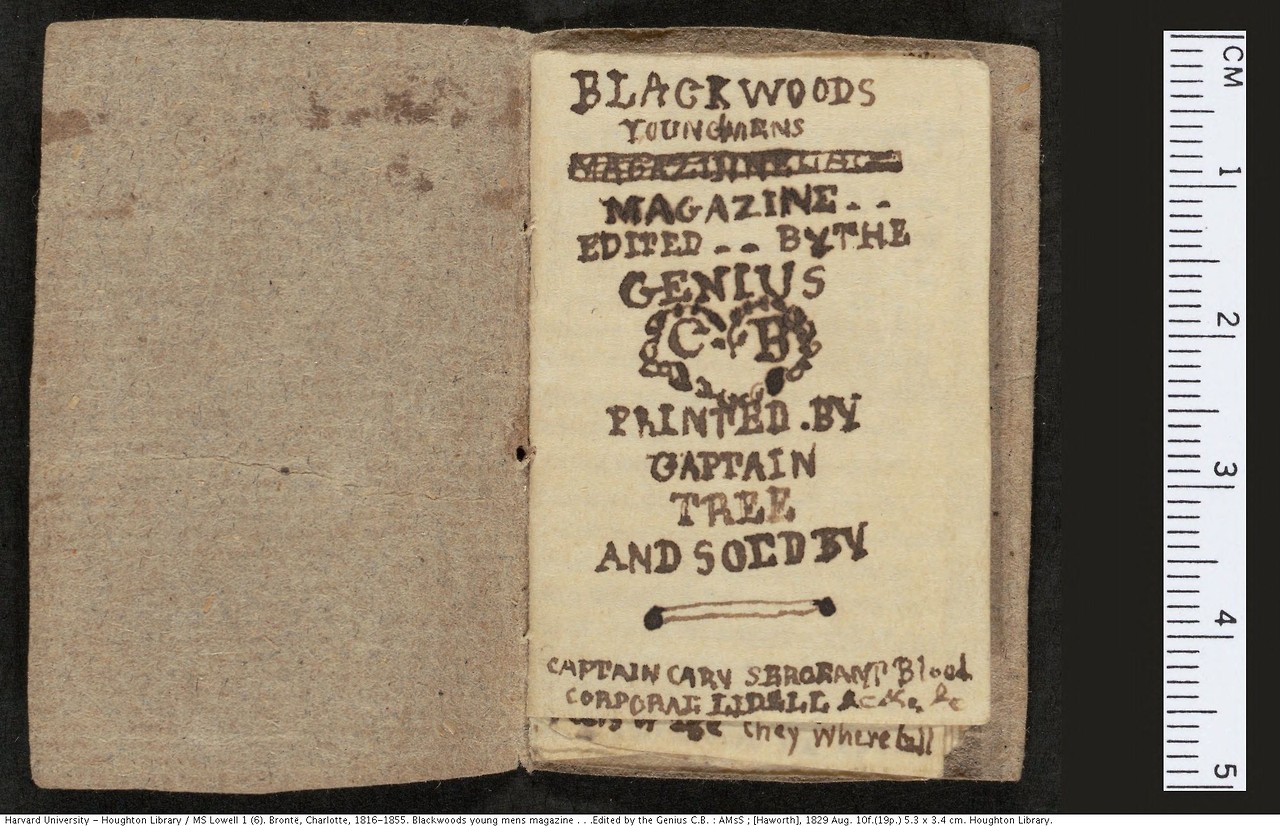 BLACKWOODS
YOUNGMENS
MAGAZINE - -
EDITED - - BY THE
GENIUS
C B
PRINTED . BY
CAPTAIN
TREE
AND SOLD BY
CAPTAIN CARY SERGEANT Blood
CORPORAL LIDELL &c &c &c
of age they where tall
CM
1
2
3
4
5
Harvard University - Houghton Library / MS Lowell 1 (6). Brontë, Charlotte, 1816-1855. Blackwoods young mens magazine . . .Edited by the Genius C.B. : AMsS ; [Haworth], 1829 Aug. 10f.(19p.) 5.3 x 3.4 cm. Houghton Library.